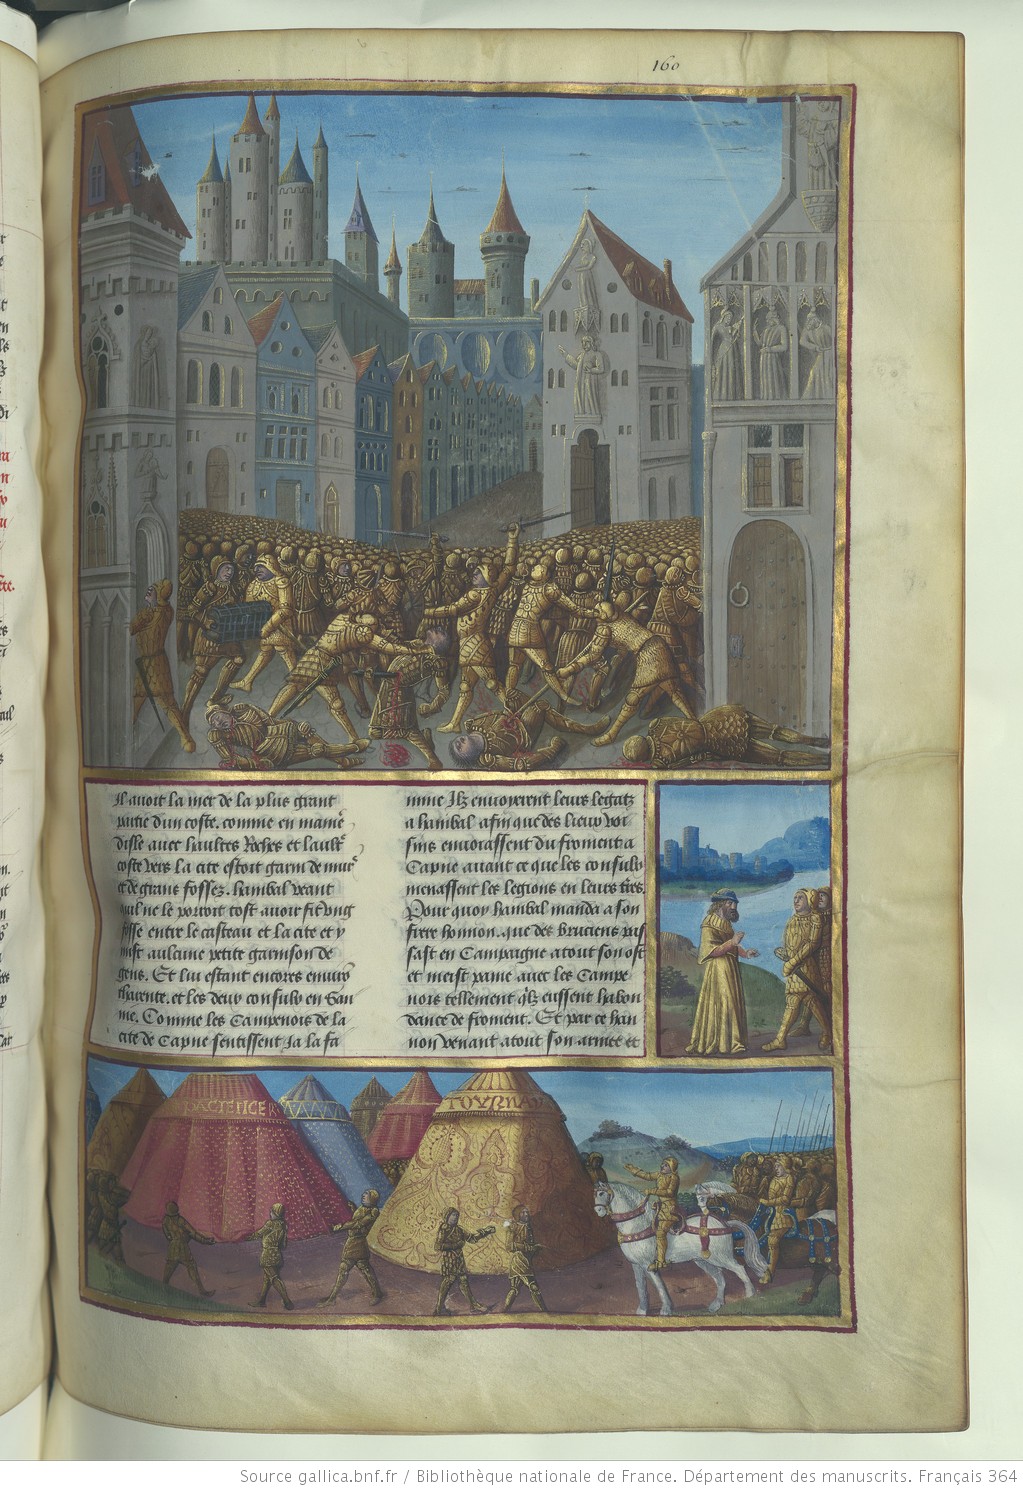 160
Il avoit la mer de la plus grant
partie dun coste. comme en maniê
disle avec haultes Roches et laultre
coste vers la cite estoit garni de murs
et de grans fossez. hanibal veant
quil ne le pouoit tost avoir fit ung
fosse entre le casteau et la cite et y
mist aulcune petite garnison de
gens. Et lui estant encores enuirō
tharente. et les deux consulz en San
nie. Comme les Campenois de la
cite de Capue sentissent Ja la fa
mine Ilz envoyerent leurs legatz
a hanibal afin que des lieux voi
sins envoiassent du froment a
Capue avant ce que les consulz
menassent les legions en leurs tr̄es.
Pour quoy hanibal manda a son
frere hannon. que des Bruciens pas
sast en Campaigne a tout son ost
et meist paine avec les Campe
nois tellement q̄lz eussent habon
dance de froment. Et par ce han
non venant a tout son armee et
PACIENCER
TOVRNAY
Source gallica.bnf.fr / Bibliothèque nationale de France. Département des manuscrits. Français 364